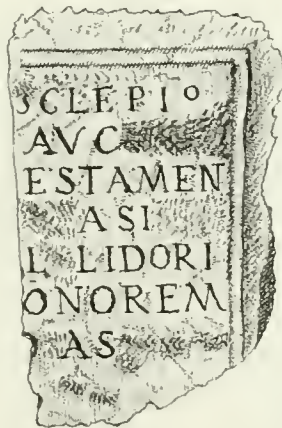 SCLEPIO
AVC
ESTAMEN
ASI
L LIDORI
ONOREM
AS